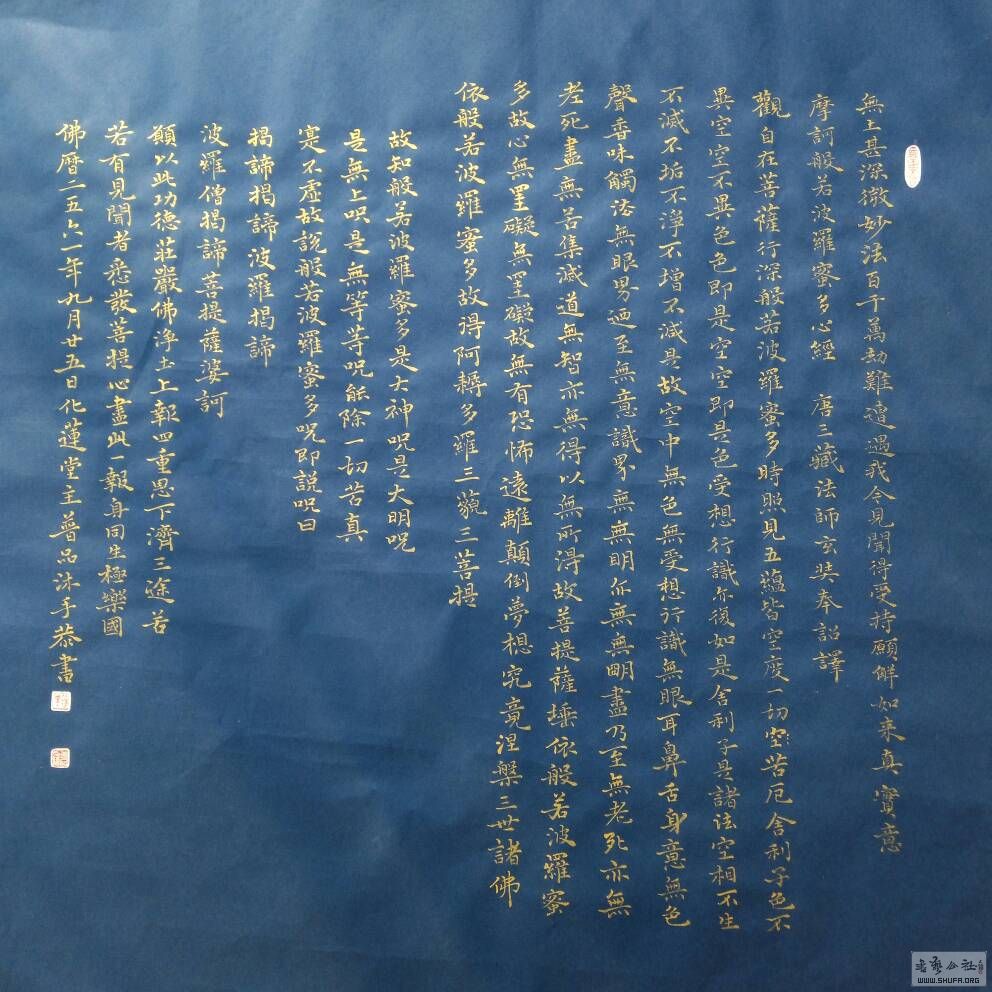 無上甚深微妙法百千萬劫難遭遇我今見聞得受持願解如来真實意
摩訶般若波羅蜜多心經 唐三藏法師玄奘奉詔譯
觀自在菩薩行深般若波羅蜜多時照見五蘊皆空度一切空苦厄舍利子色不
異空空不異色色即是空空即是色受想行識亦復如是舍利子是諸法空相不生
不滅不垢不淨不增不減是故空中無色無受想行識無眼耳鼻舌身意無色
聲香味觸法無眼界廼至無意識界無無明亦無無朙盡乃至無老死亦無
老死盡無苦集滅道無智亦無得以無所得故菩提薩埵依般若波羅蜜
多故心無罣礙無罣礙故無有恐怖遠離顛倒夢想究竟涅槃三世諸佛
依般若波羅蜜多故得阿耨多羅三藐三菩提
故知般若波羅蜜多是大神呪是大明呪
是無上呪是無等等呪能除一切苦真
寔不虛故說般若波羅蜜多呪即説呪曰
揭諦揭諦波羅揭諦
波羅僧揭諦菩提薩婆訶
願以此功德莊嚴佛淨土上報四重恩下濟三途苦
若有見聞者悉發菩提心盡此一報身同生極樂國
佛曆二五六一年九月廿五日化蓮堂王普品沐手恭書
WWW.SHUFA.ORG